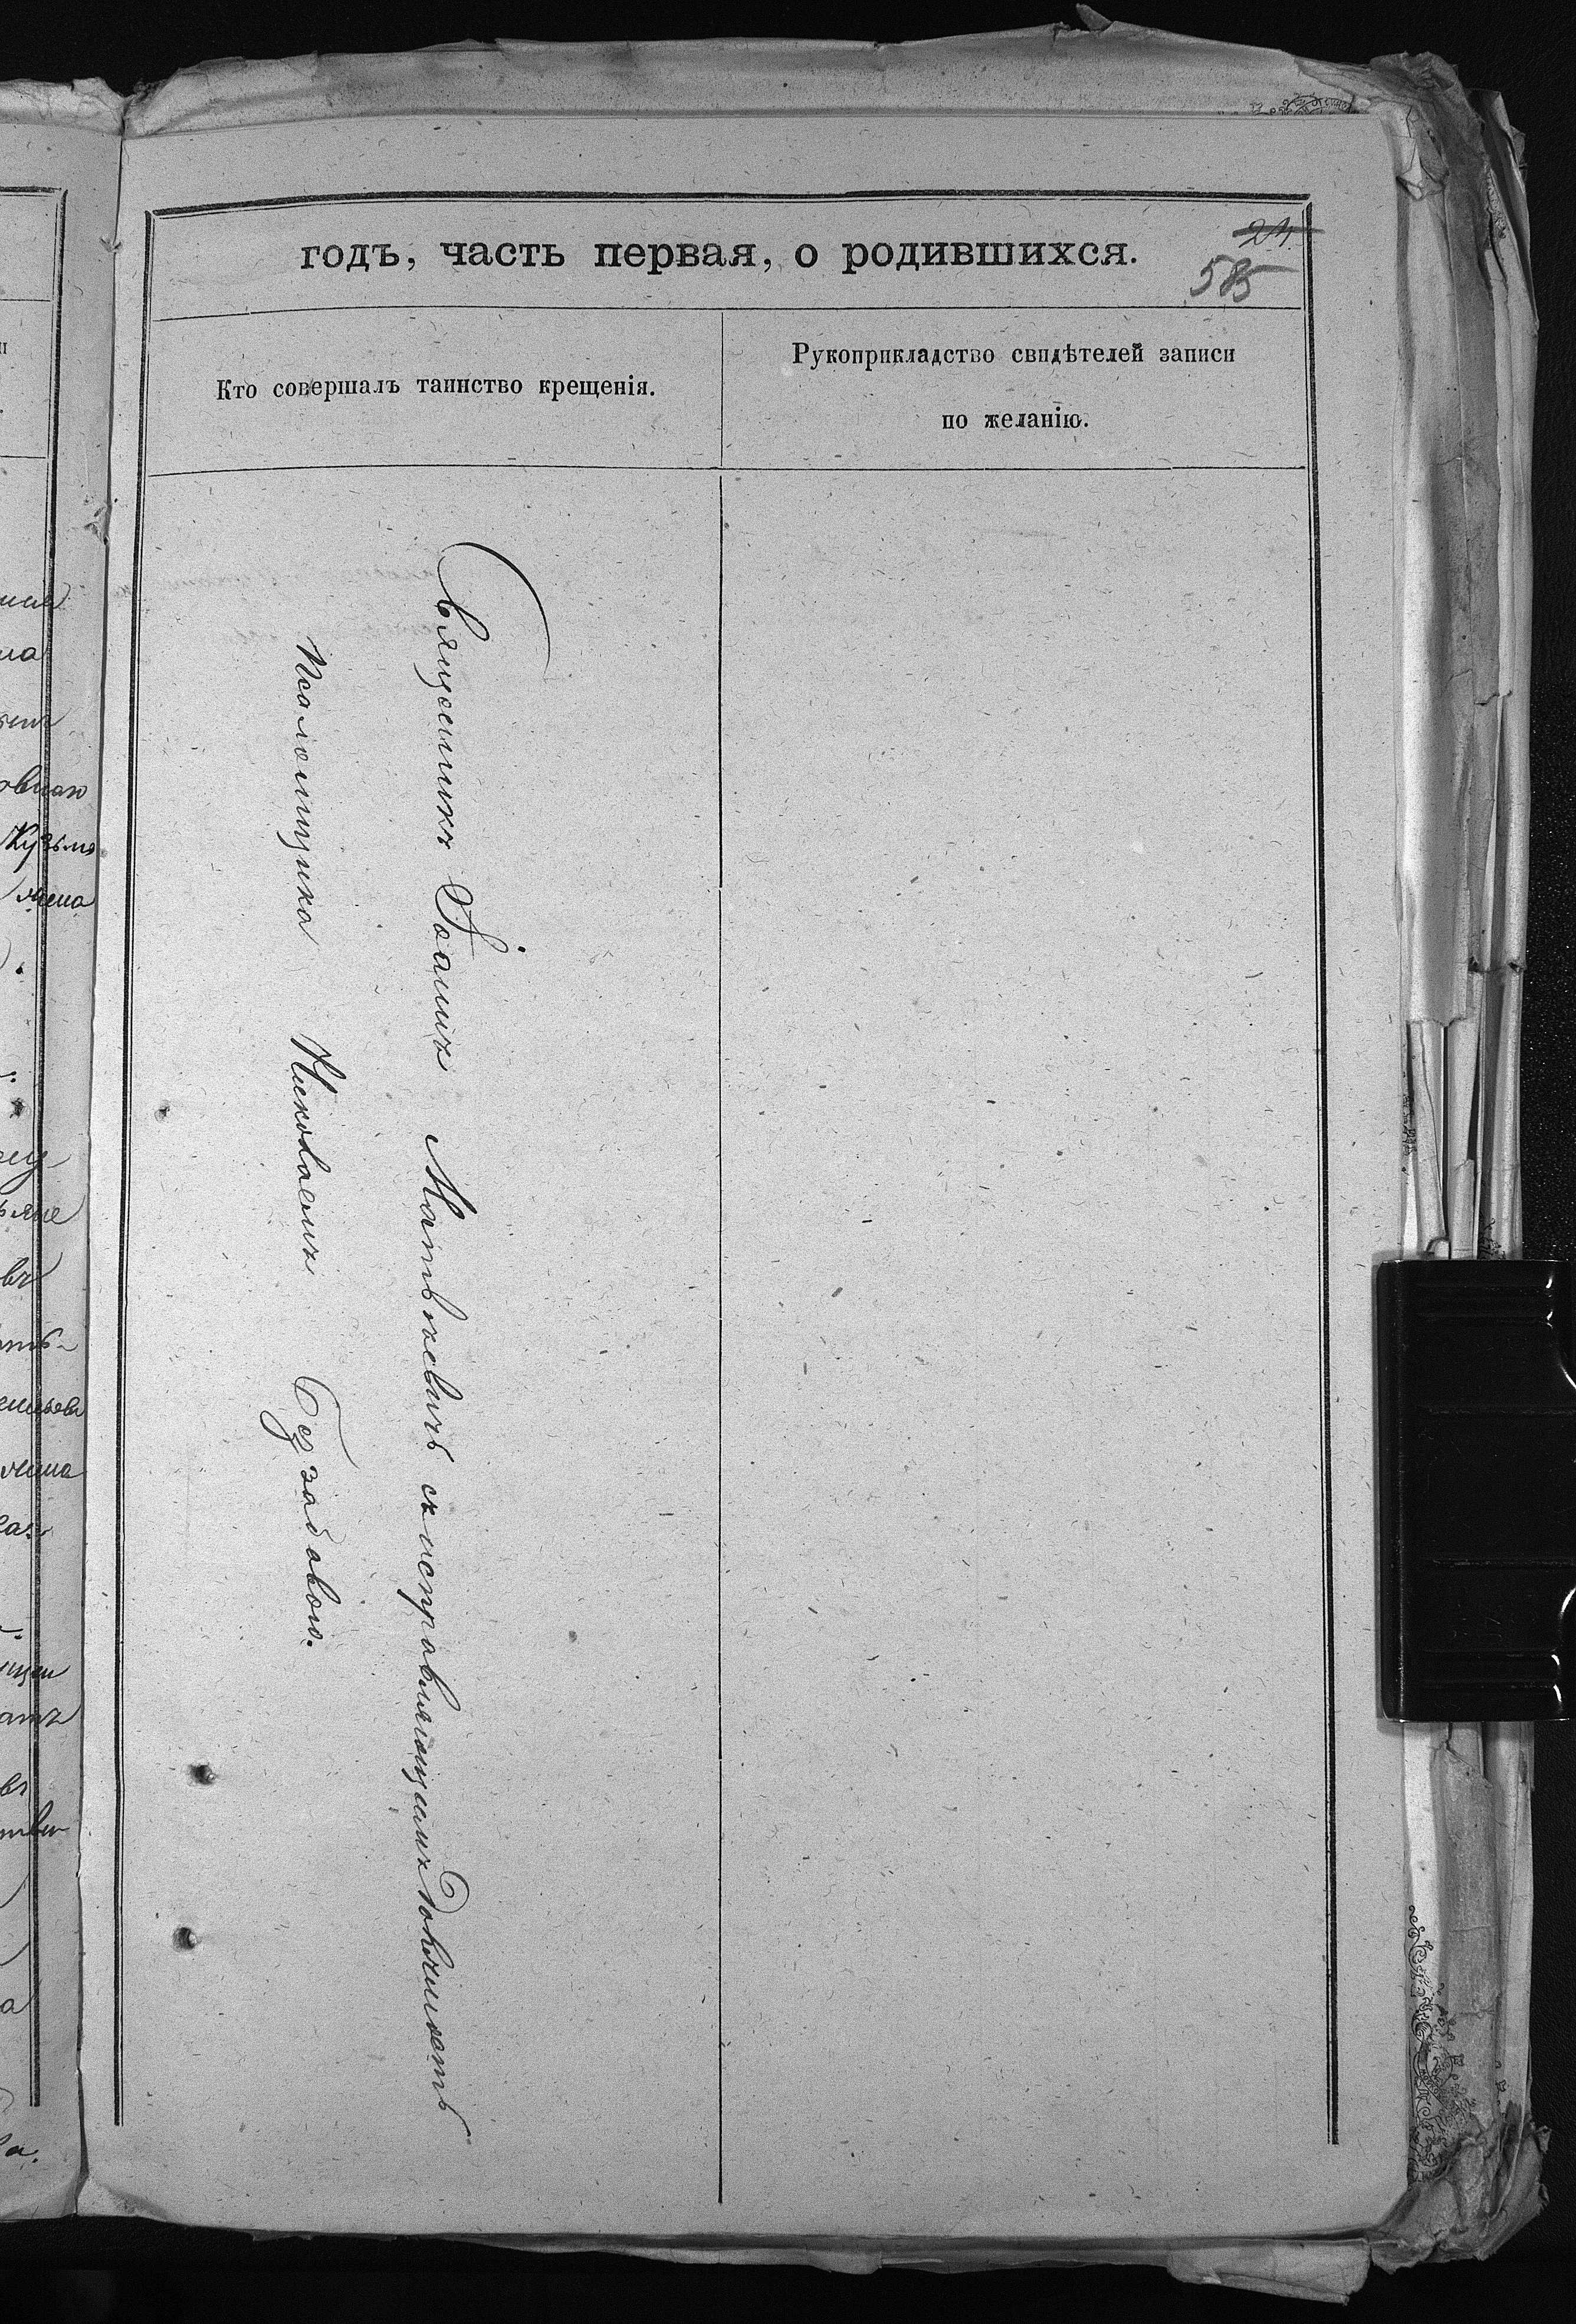 годъ, часть первая, о родившихся.
24
585
Кто совершалъ таинство крещенія.
Рукоприкладство свидѣтелей записи
по желанію.
Священникъ Іоаннъ Матѳкевичъ съ исправляющимъ Должность
Псаломщика Николаемъ Беззабавою.
Кузьма